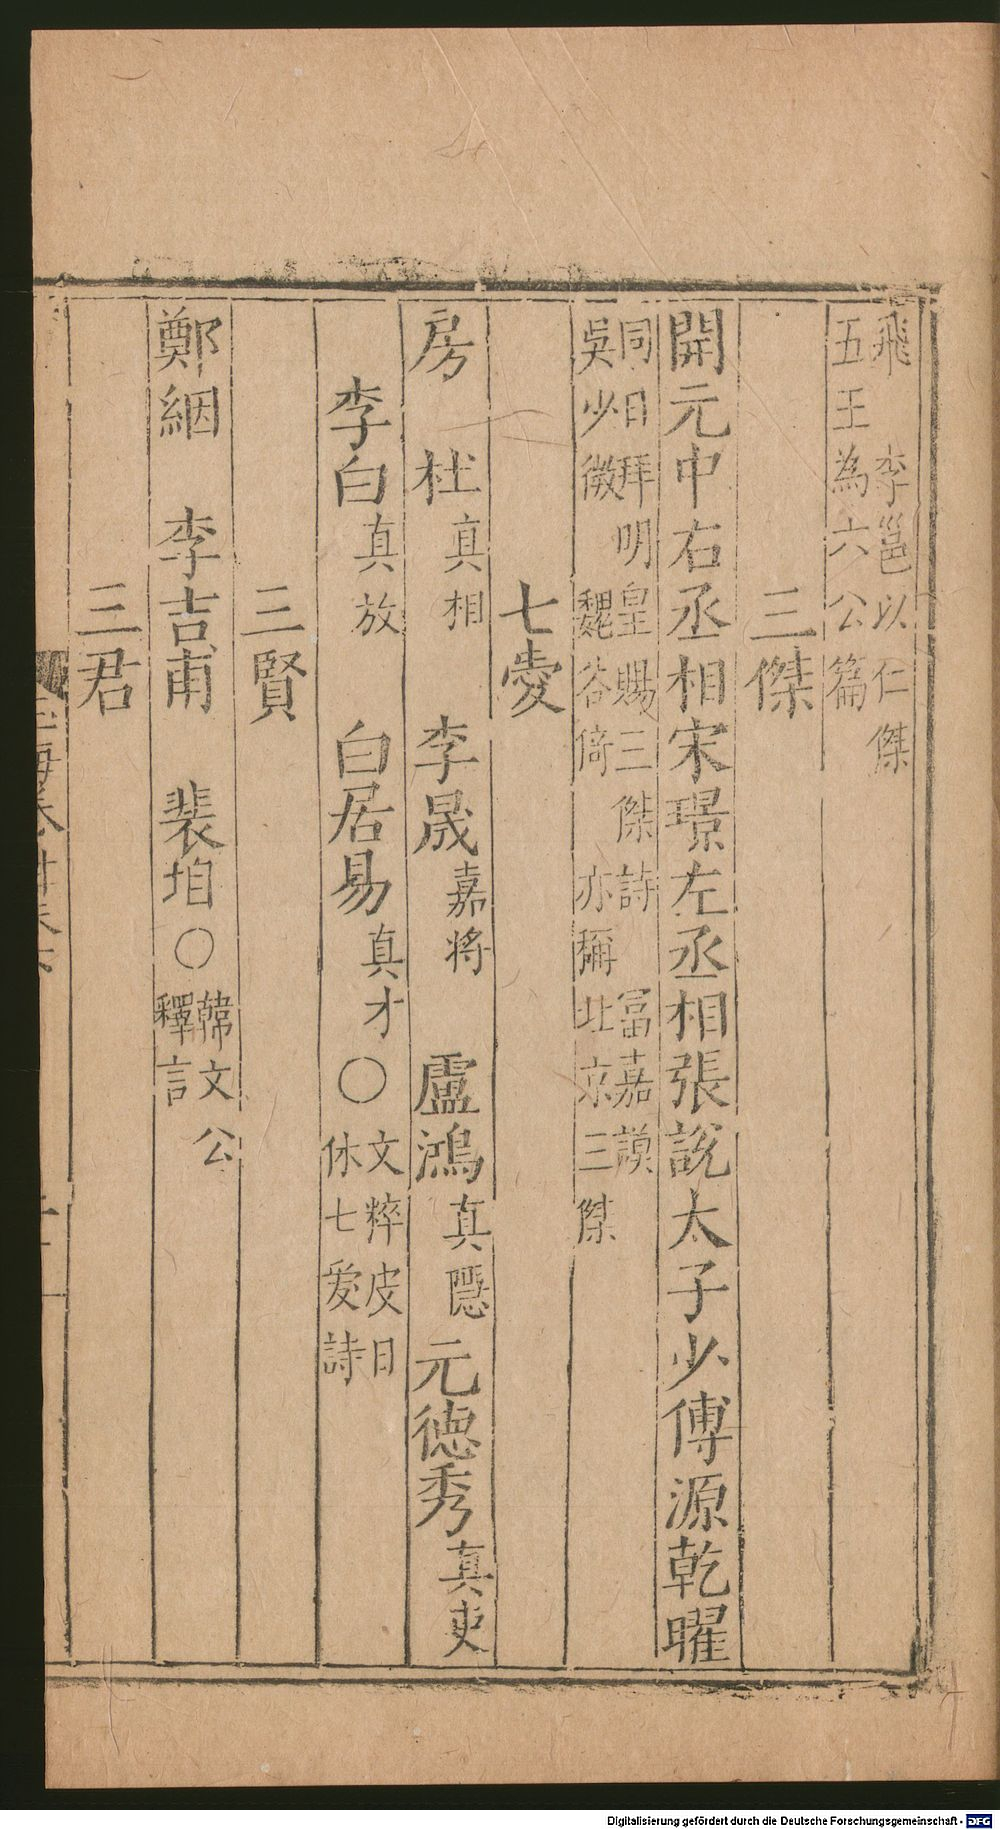 飛　李邕以仁傑
五王為六公篇
三傑
開元中右丞相宋璟左丞相張說太子少傅源乾曜
同日拜明皇賜三傑詩　富嘉謨
吳少微　魏谷倚　亦稱北京三傑
七愛
房　杜真相　李晟嘉将　盧鴻真隱元德秀真吏
李白真放　白居易真才〇文粹皮日
休七爱詩
三賢
鄭絪　李吉甫　裴垍〇韓文公
釋言
三君
Digitalisierung gefördert durch die Deutsche Forschungsgemeinschaft - DFG